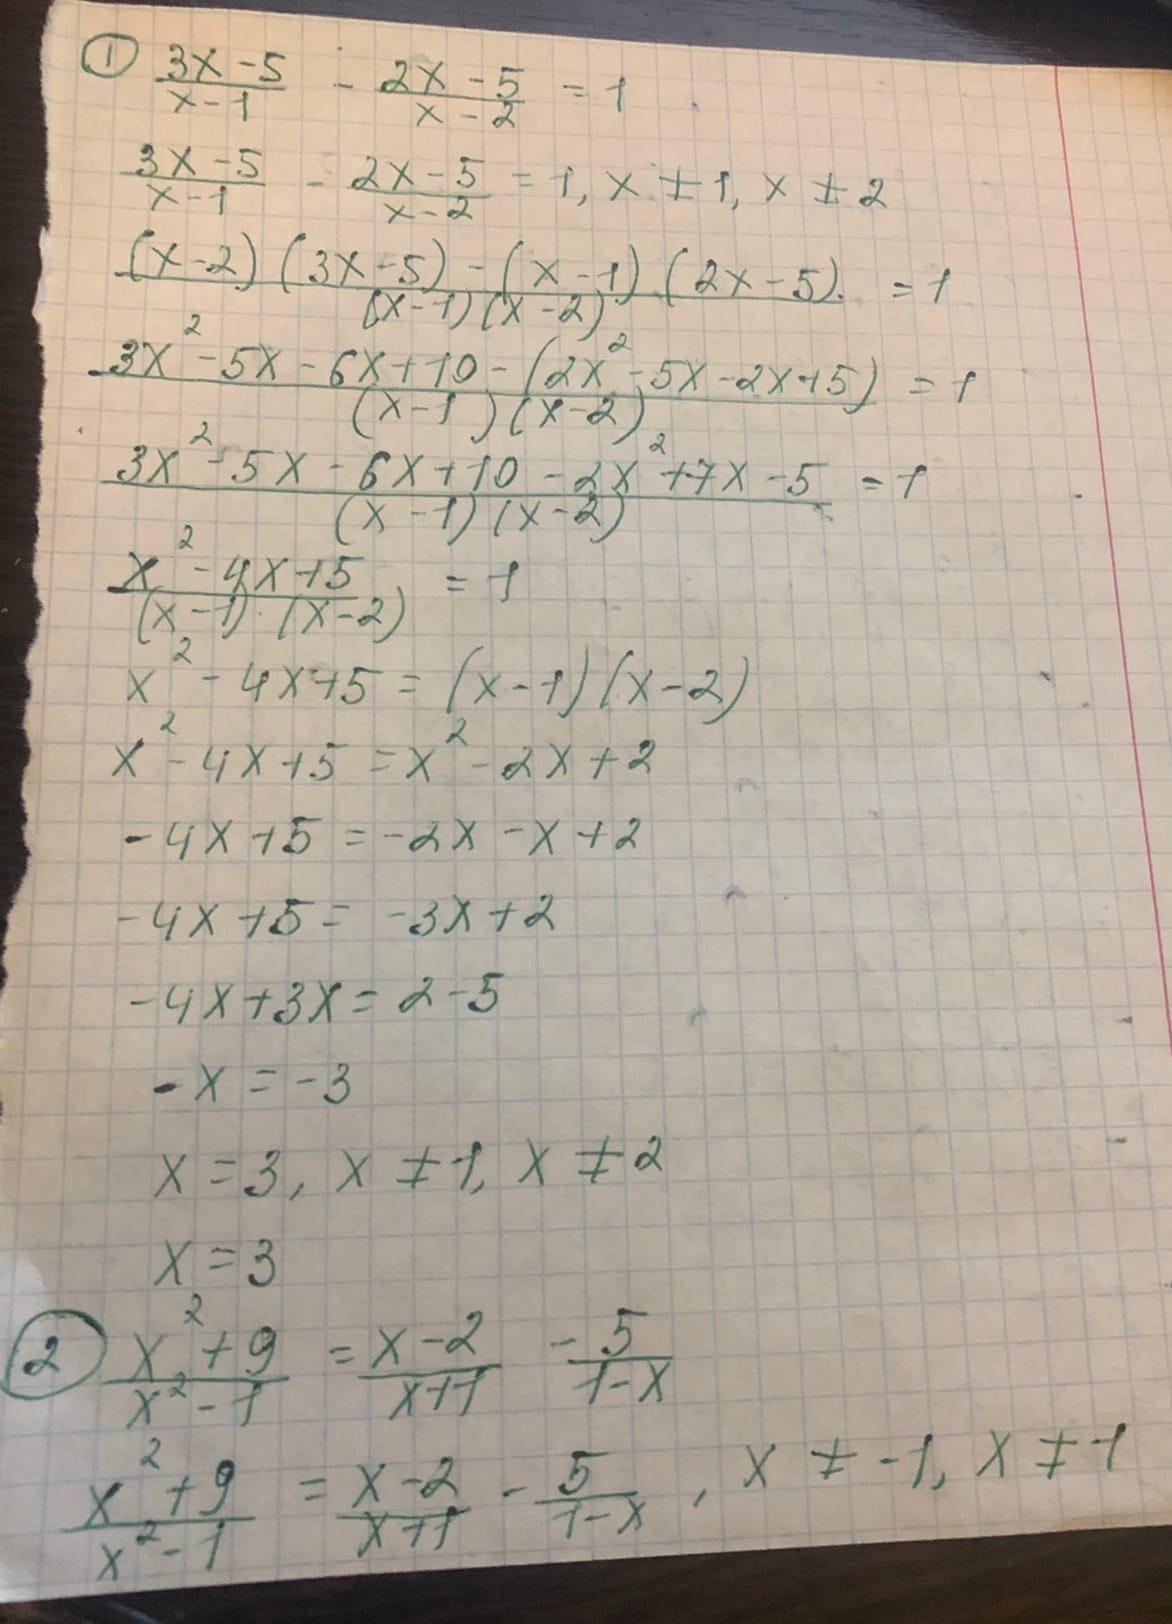 ① (3x-5)/(x-1) - (2x-5)/(x-2) = 1
(3x-5)/(x-1) - (2x-5)/(x-2) = 1, x ≠ 1, x ≠ 2
((x-2)(3x-5)-(x-1)(2x-5))/((x-1)(x-2)) = 1
(3x²-5x-6x+10-(2x²-5x-2x+5))/((x-1)(x-2)) = 1
(3x²-5x-6x+10-2x²+7x-5)/((x-1)(x-2)) = 1
(x²-4x+5)/((x-1)·(x-2)) = 1
x²-4x+5=(x-1)(x-2)
x²-4x+5=x²-2x+2
-4x+5=-2x-x+2
-4x+5=-3x+2
-4x+3x=2-5
-x=-3
x=3, x≠1, x≠2
x=3
② (x²+9)/(x²-1) = (x-2)/(x+1) - 5/(1-x)
(x²+9)/(x²-1) = (x-2)/(x+1) - 5/(1-x), x≠-1, x≠1